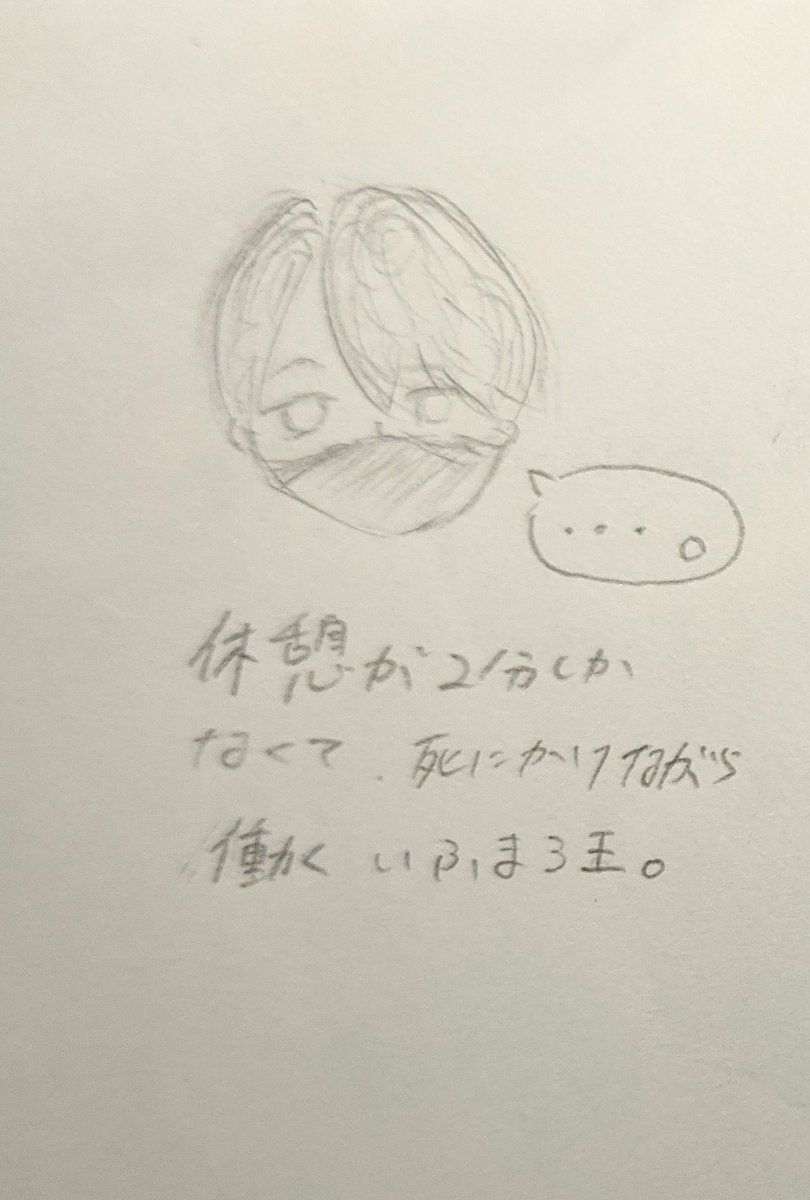 ・・・。
休憩が2分しか
なくて、死にかけながら
働くいふまろ王。